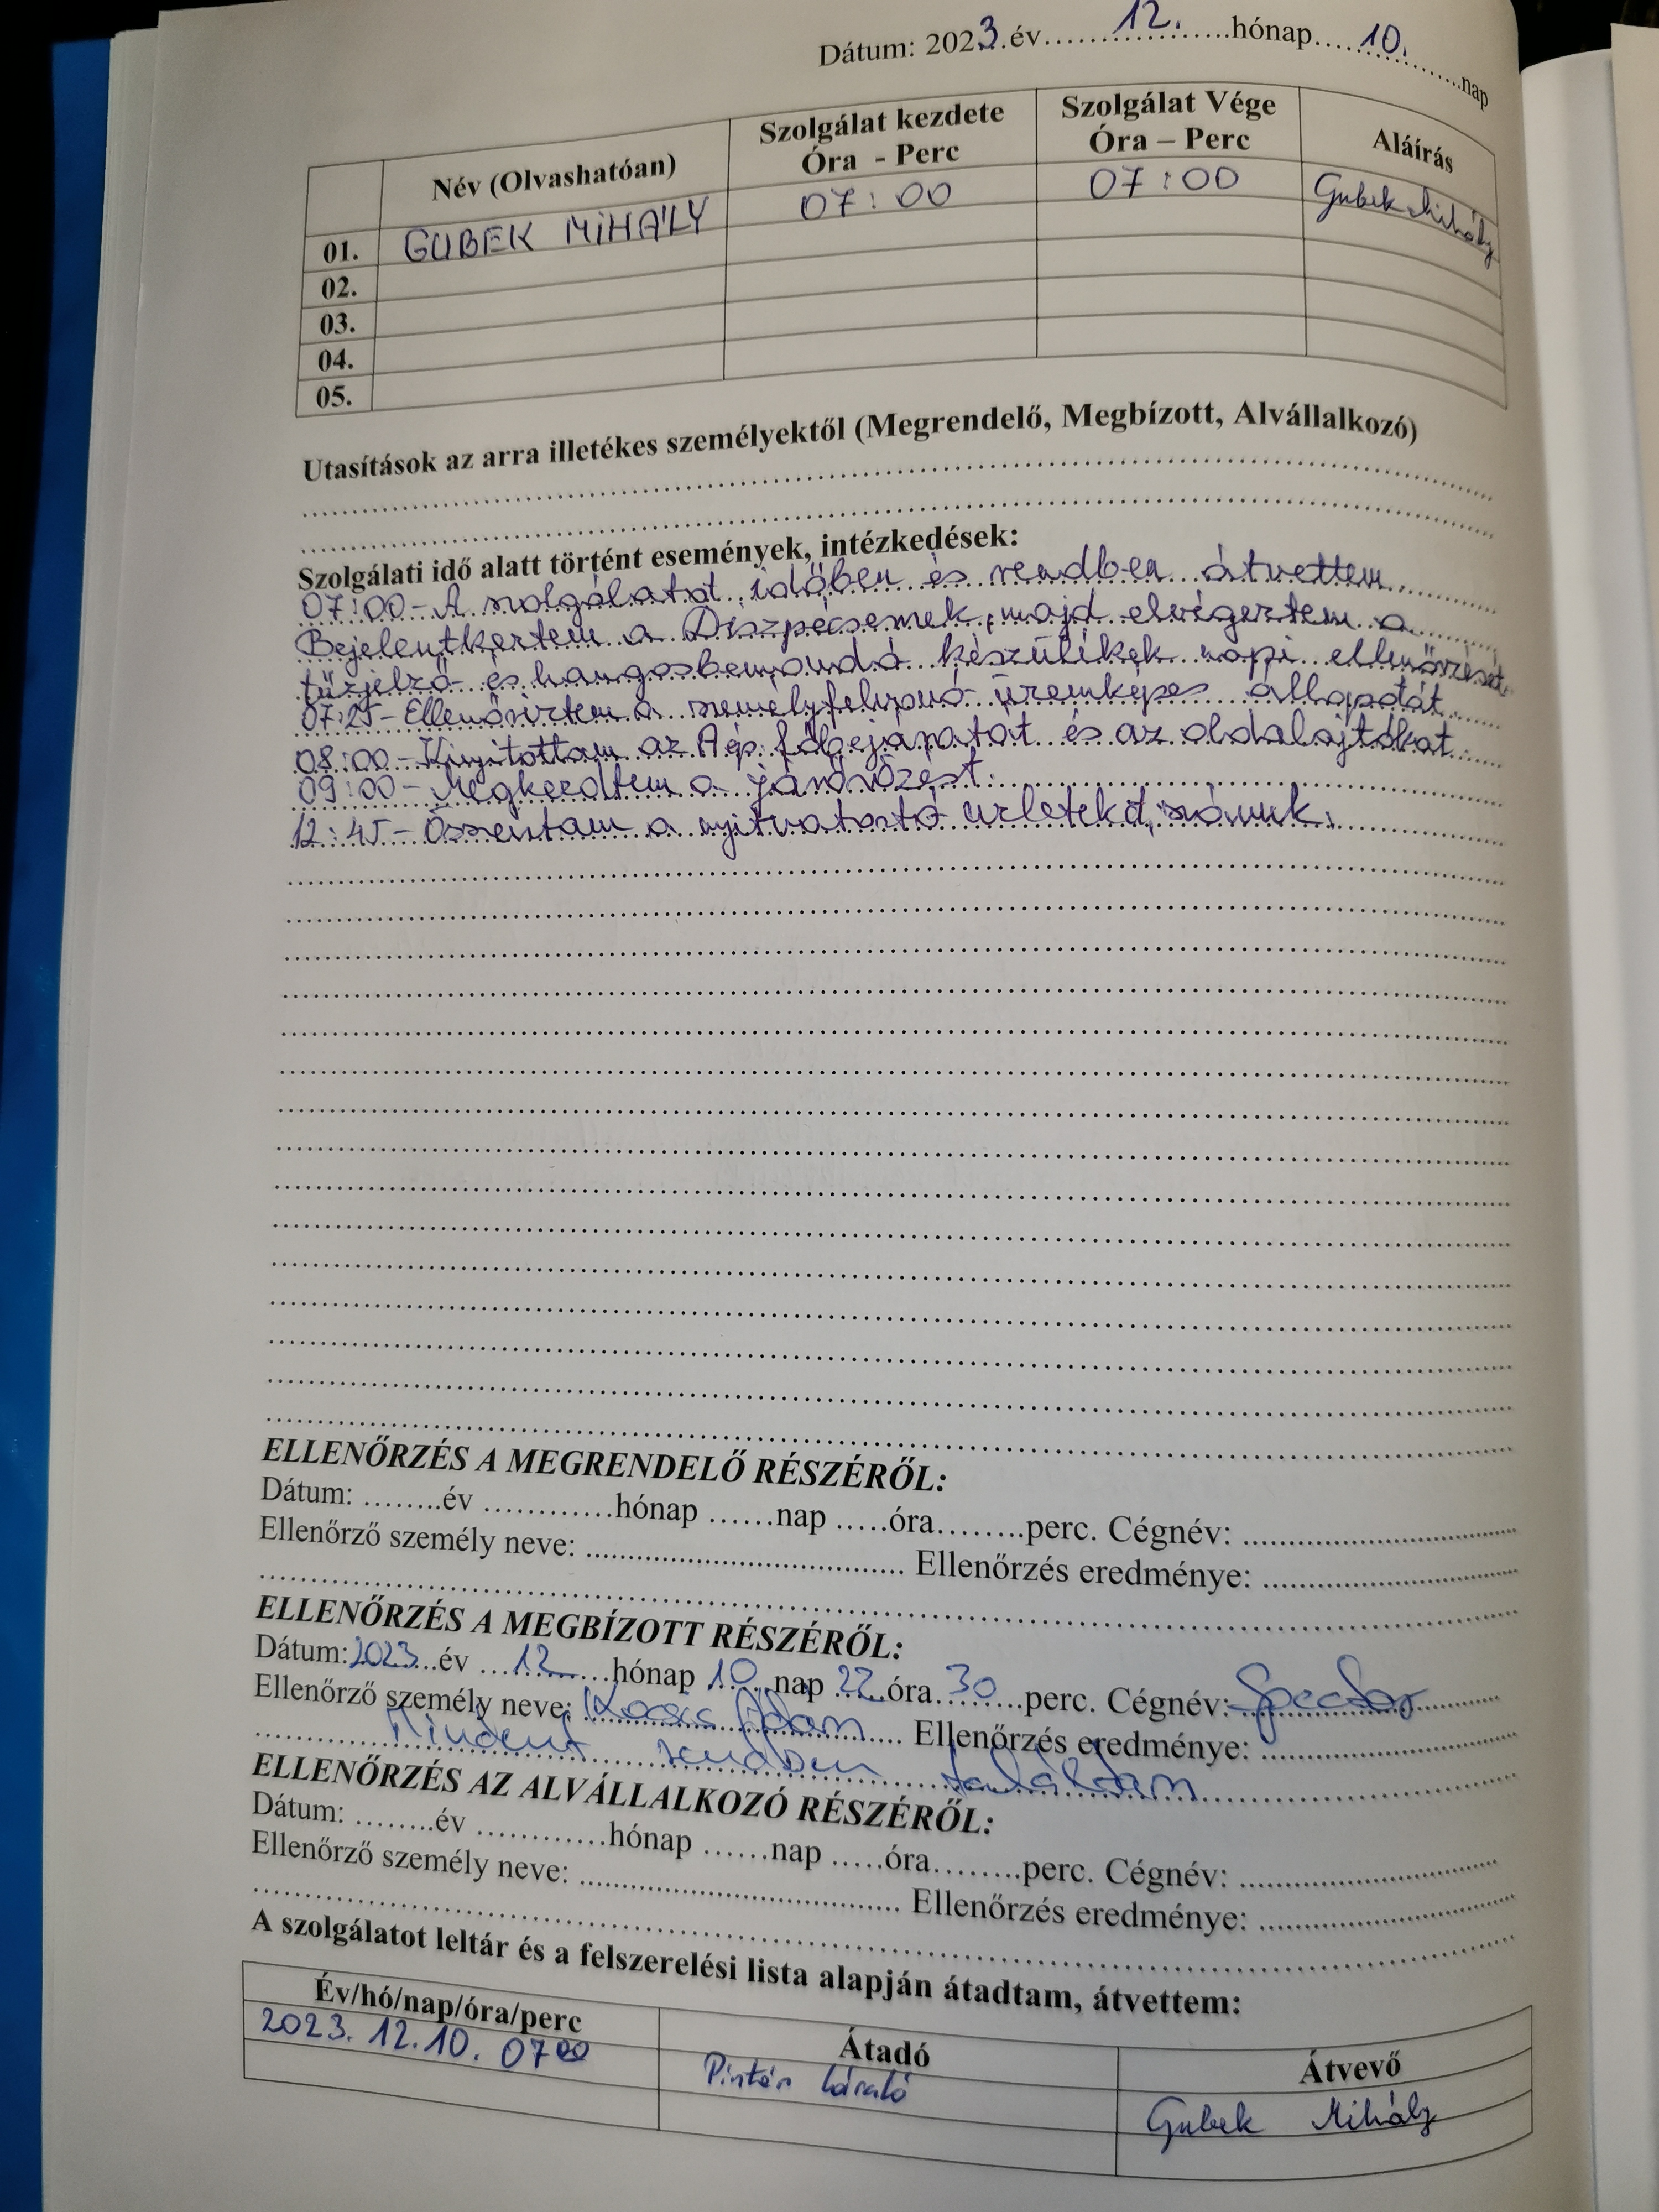 Dátum: 2023.év 12. hónap 10. nap
Név (Olvashatóan) Szolgálat kezdete Óra - Perc Szolgálat Vége Óra – Perc Aláírás
01. GUBEK MIHÁLY 07:00 07:00 Gubek Mihály
02.
03.
04.
05.
Utasítások az arra illetékes személyektől (Megrendelő, Megbízott, Alvállalkozó)
Szolgálati idő alatt történt események, intézkedések:
07:00 - A szolgálatot időben és rendben átvettem.
Bejelentkeztem a Diszpécsernek, majd elvégeztem a
tűzjelző és hangosbemondó készülékek napi ellenőrzését.
07:25 - Ellenőriztem a személyfelvonó üzemképes állapotát.
08:00 - Kinyitottam az A ép. főbejáratot és az oldalajtókat.
09:00 - Megkezdtem a járőrözést.
12:45 - Összeírtam a nyitvatartó üzletek számuk.
ELLENŐRZÉS A MEGRENDELŐ RÉSZÉRŐL:
Dátum: ........év ............hónap ......nap .....óra........perc. Cégnév: ..............................
Ellenőrző személy neve: .................................... Ellenőrzés eredménye: ..............................
ELLENŐRZÉS A MEGBÍZOTT RÉSZÉRŐL:
Dátum: 2023 év 12 hónap 10 nap 22 óra 30 perc. Cégnév:
Ellenőrző személy neve: Kocsis Ádám Ellenőrzés eredménye:
Mindent rendben találtam
ELLENŐRZÉS AZ ALVÁLLALKOZÓ RÉSZÉRŐL:
Dátum: ........év ............hónap ......nap .....óra........perc. Cégnév: ..............................
Ellenőrző személy neve: .................................... Ellenőrzés eredménye: ..............................
A szolgálatot leltár és a felszerelési lista alapján átadtam, átvettem:
Év/hó/nap/óra/perc Átadó Átvevő
2023. 12. 10. 07 00 Pintér László Gubek Mihály